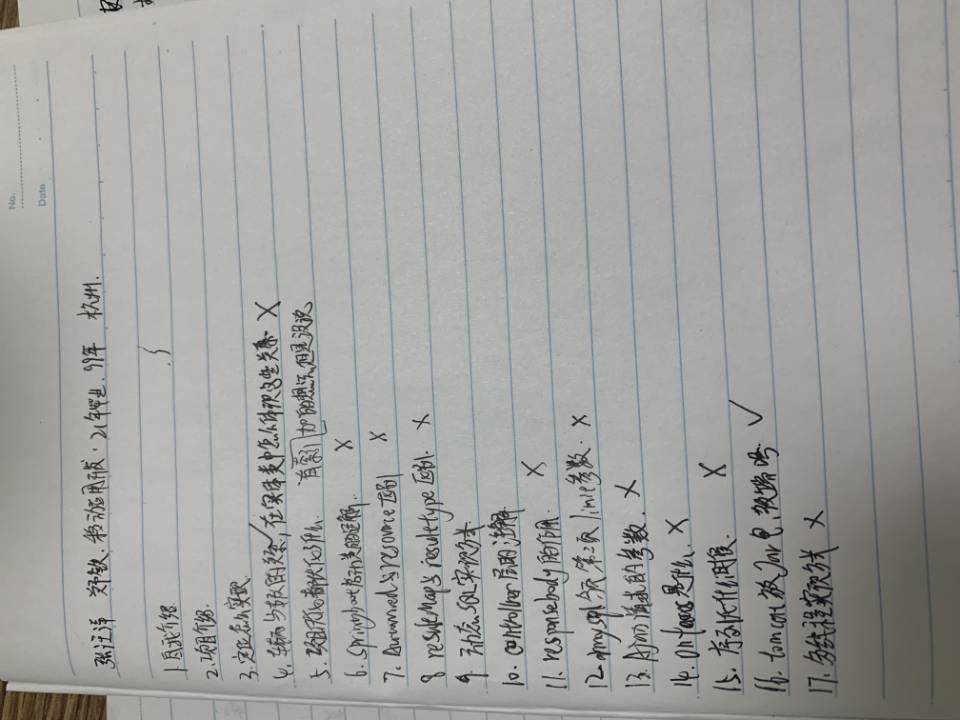 No.
Date
张汪洋 郑铁. 移动应用开发. 21年毕业. 99年 杭州.
1.自我介绍
2.项目介绍.
3.定位怎么实现
4.车辆与车友的关系✓, 在实体类中怎么体现这些关系 X
5.项目优化都优化了什么. 有索引 加的想法但是没说
6.Springboot启动类的理解. X
7.Autowired与resource区别 X
8 resultMap与resulttype区别. X
9.动态SQL实现方式
10.controller层的注解
11.responsebody的作用. X
12.mysql 第二页 limit参数. X
13.Ajax请求的参数. X
14.是什么. X
15.序列化什么时候. X
16.tomcat放Jar包,放哪 ✓
17.多线程实现方式 X